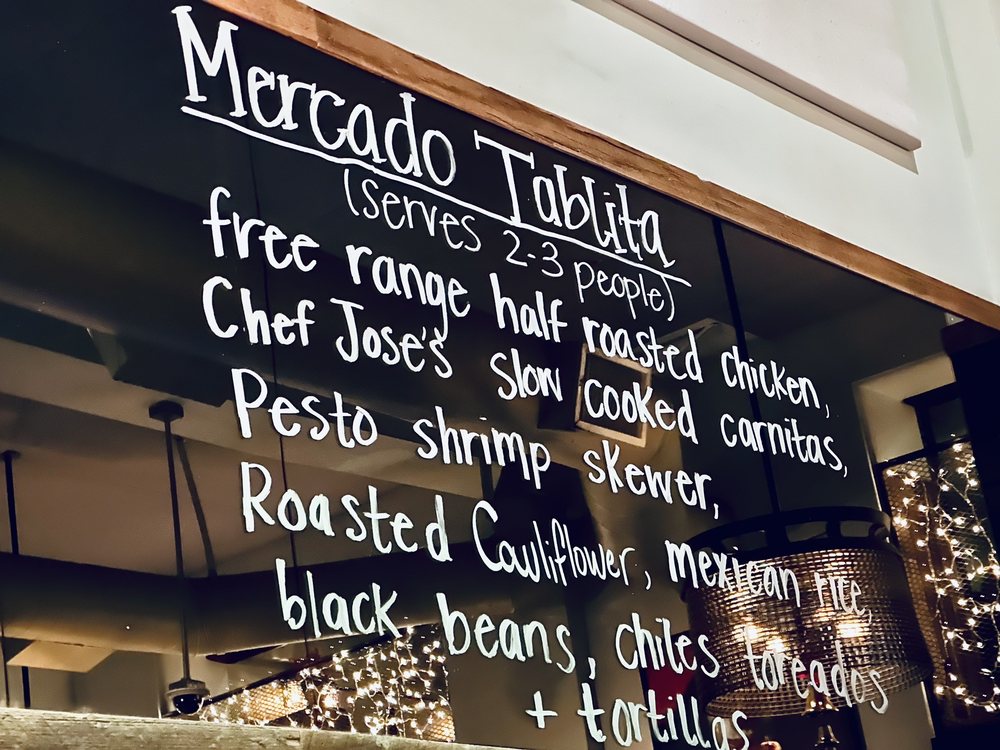 Mercado Tablita
(serves 2-3 people)
free range half roasted chicken,
Chef Jose's slow cooked carnitas,
Pesto shrimp skewer,
Roasted Cauliflower, mexican rice,
black beans, chiles toreados
+ tortillas